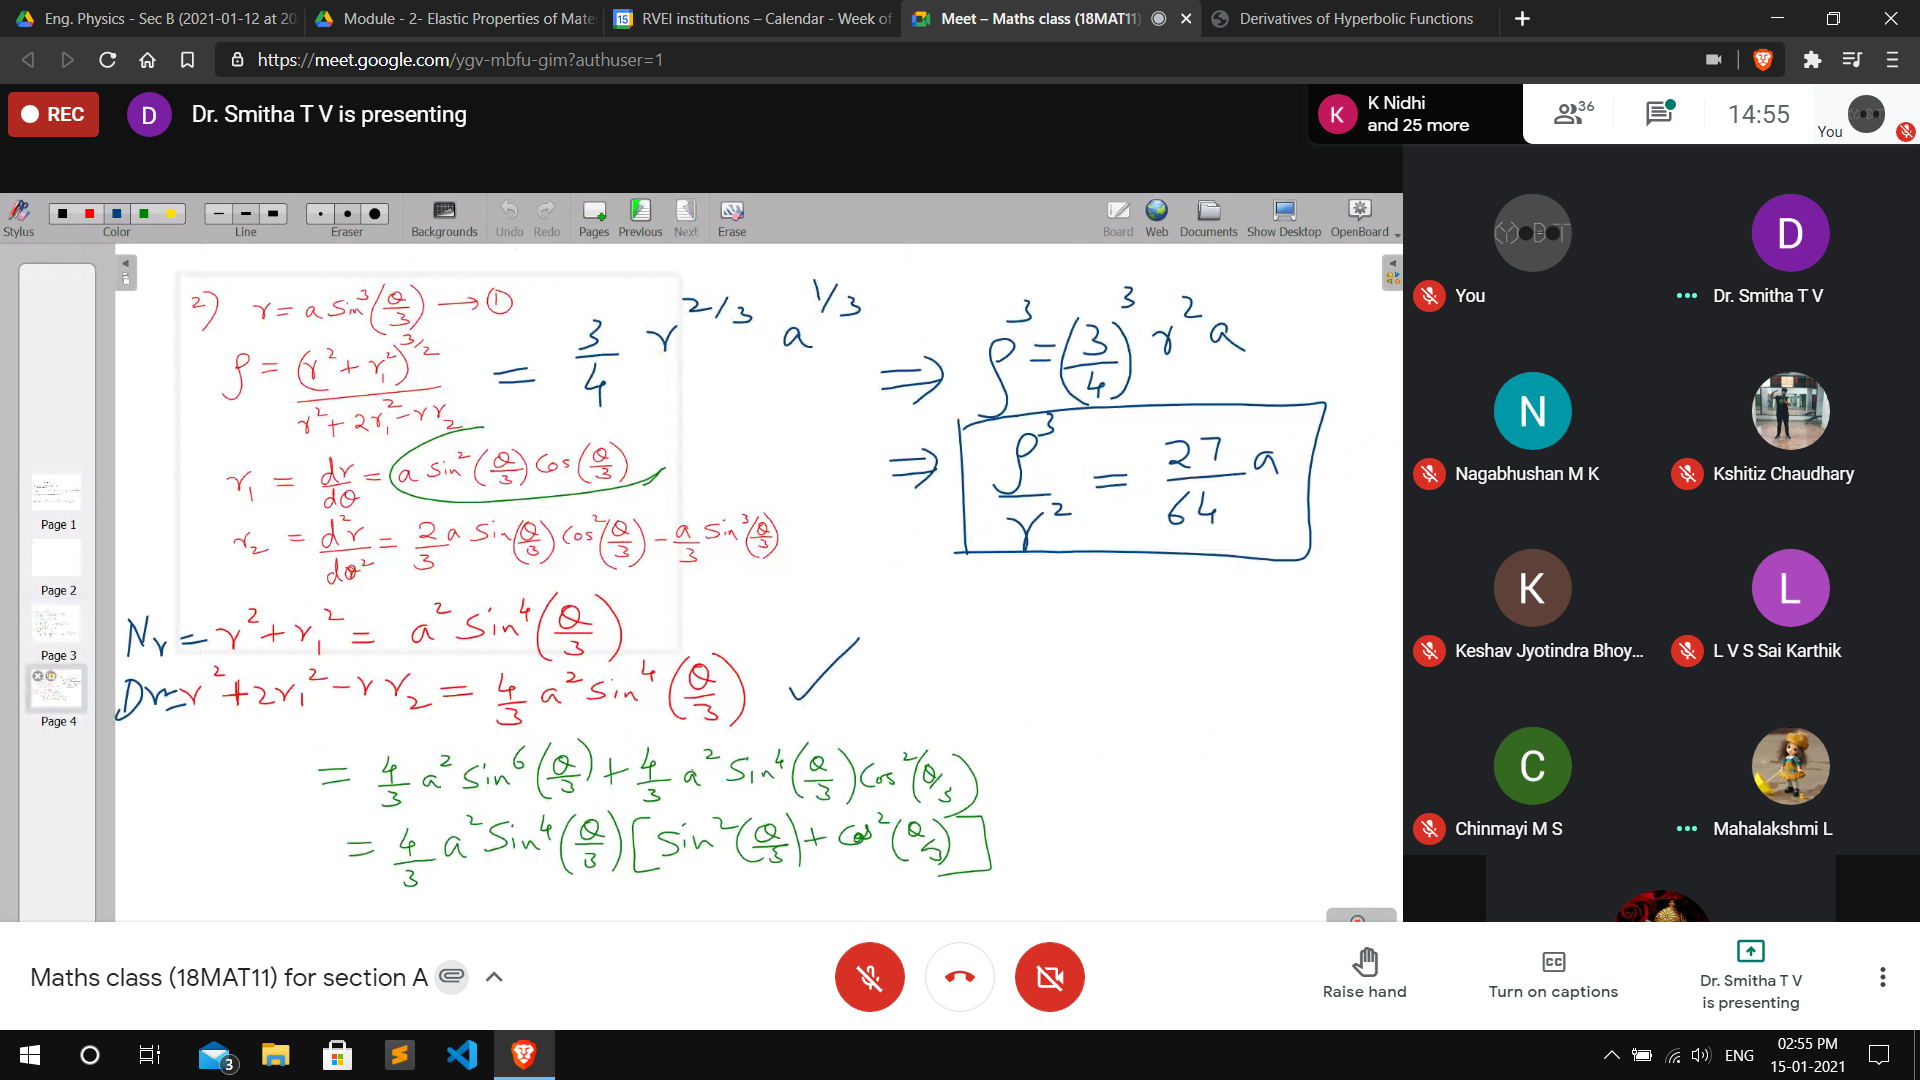 Eng. Physics - Sec B (2021-01-12 at 20
Module - 2- Elastic Properties of Mate
RVEI institutions – Calendar - Week of
Meet – Maths class (18MAT11)
Derivatives of Hyperbolic Functions
https://meet.google.com/ygv-mbfu-gim?authuser=1
REC
D
Dr. Smitha T V is presenting
K
K Nidhi
and 25 more
36
14:55
You
Stylus
Color
Line
Eraser
Backgrounds
Undo
Redo
Pages
Previous
Next
Erase
Board
Web
Documents
Show Desktop
OpenBoard
Page 1
Page 2
Page 3
Page 4
2) r = a sin³(θ/3) → ①
ρ = (r² + r₁²)^3/2 / r² + 2r₁² - r r₂ = 3/4 r^2/3 a^1/3
⇒ ρ³ = (3/4)³ r² a
⇒ ρ³/r² = 27/64 a
r₁ = dr/dθ = a sin²(θ/3) cos(θ/3)
r₂ = d²r/dθ² = 2/3 a sin(θ/3) cos²(θ/3) - a/3 sin³(θ/3)
Nr = r² + r₁² = a² sin⁴(θ/3)
Dr = r² + 2r₁² - r r₂ = 4/3 a² sin⁴(θ/3) ✓
= 4/3 a² sin⁶(θ/3) + 4/3 a² sin⁴(θ/3) cos²(θ/3)
= 4/3 a² sin⁴(θ/3) [sin²(θ/3) + cos²(θ/3)]
You
D
Dr. Smitha T V
N
Nagabhushan M K
Kshitiz Chaudhary
K
Keshav Jyotindra Bhoy...
L
L V S Sai Karthik
C
Chinmayi M S
Mahalakshmi L
Maths class (18MAT11) for section A
Raise hand
CC
Turn on captions
Dr. Smitha T V
is presenting
3
ENG
02:55 PM
15-01-2021